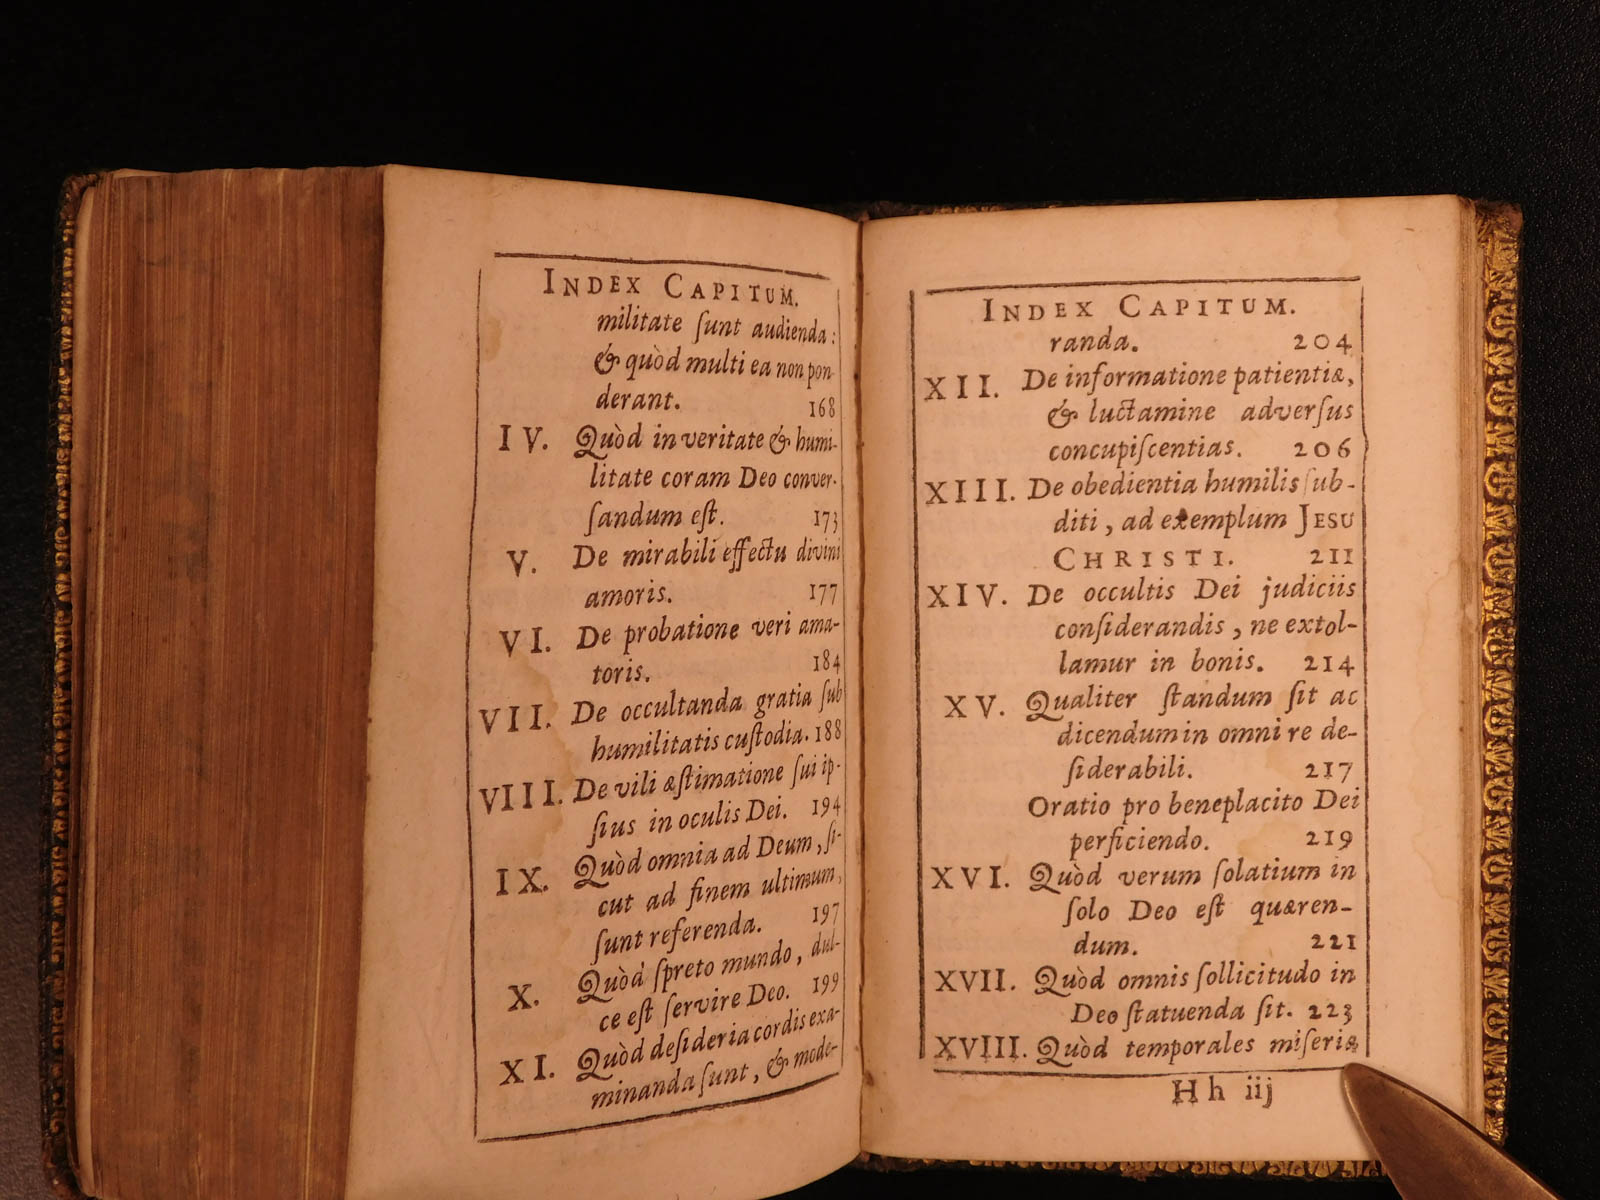 INDEX CAPITUM.
militate ſunt audienda :
& quòd multi ea non pon
derant. 168
IV. Quòd in veritate & humi-
litate coram Deo conver-
ſandum eſt. 173
V. De mirabili effectu divini
amoris. 177
VI. De probatione veri ama-
toris. 184
VII. De occultanda gratia ſub
humilitatis cuſtodia. 188
VIII. De vili æſtimatione ſui ip-
ſius in oculis Dei. 194
IX. Quòd omnia ad Deum, ſi-
cut ad finem ultimum,
ſunt referenda. 197
X. Quòd ſpreto mundo, dul-
ce eſt ſervire Deo. 199
XI. Quòd deſideria cordis exa-
minanda ſunt, & mode-
INDEX CAPITUM.
randa. 204
XII. De informatione patientiæ,
& luctamine adverſus
concupiſcentias. 206
XIII. De obedientia humilis ſub-
diti, ad exemplum JESU
CHRISTI. 211
XIV. De occultis Dei judiciis
conſiderandis, ne extol-
lamur in bonis. 214
XV. Qualiter ſtandum ſit ac
dicendum in omni re de-
ſiderabili. 217
Oratio pro beneplacito Dei
perficiendo. 219
XVI. Quòd verum ſolatium in
ſolo Deo eſt quæren-
dum. 221
XVII. Quòd omnis ſollicitudo in
Deo ſtatuenda ſit. 223
XVIII. Quòd temporales miſeriæ
Hh iij